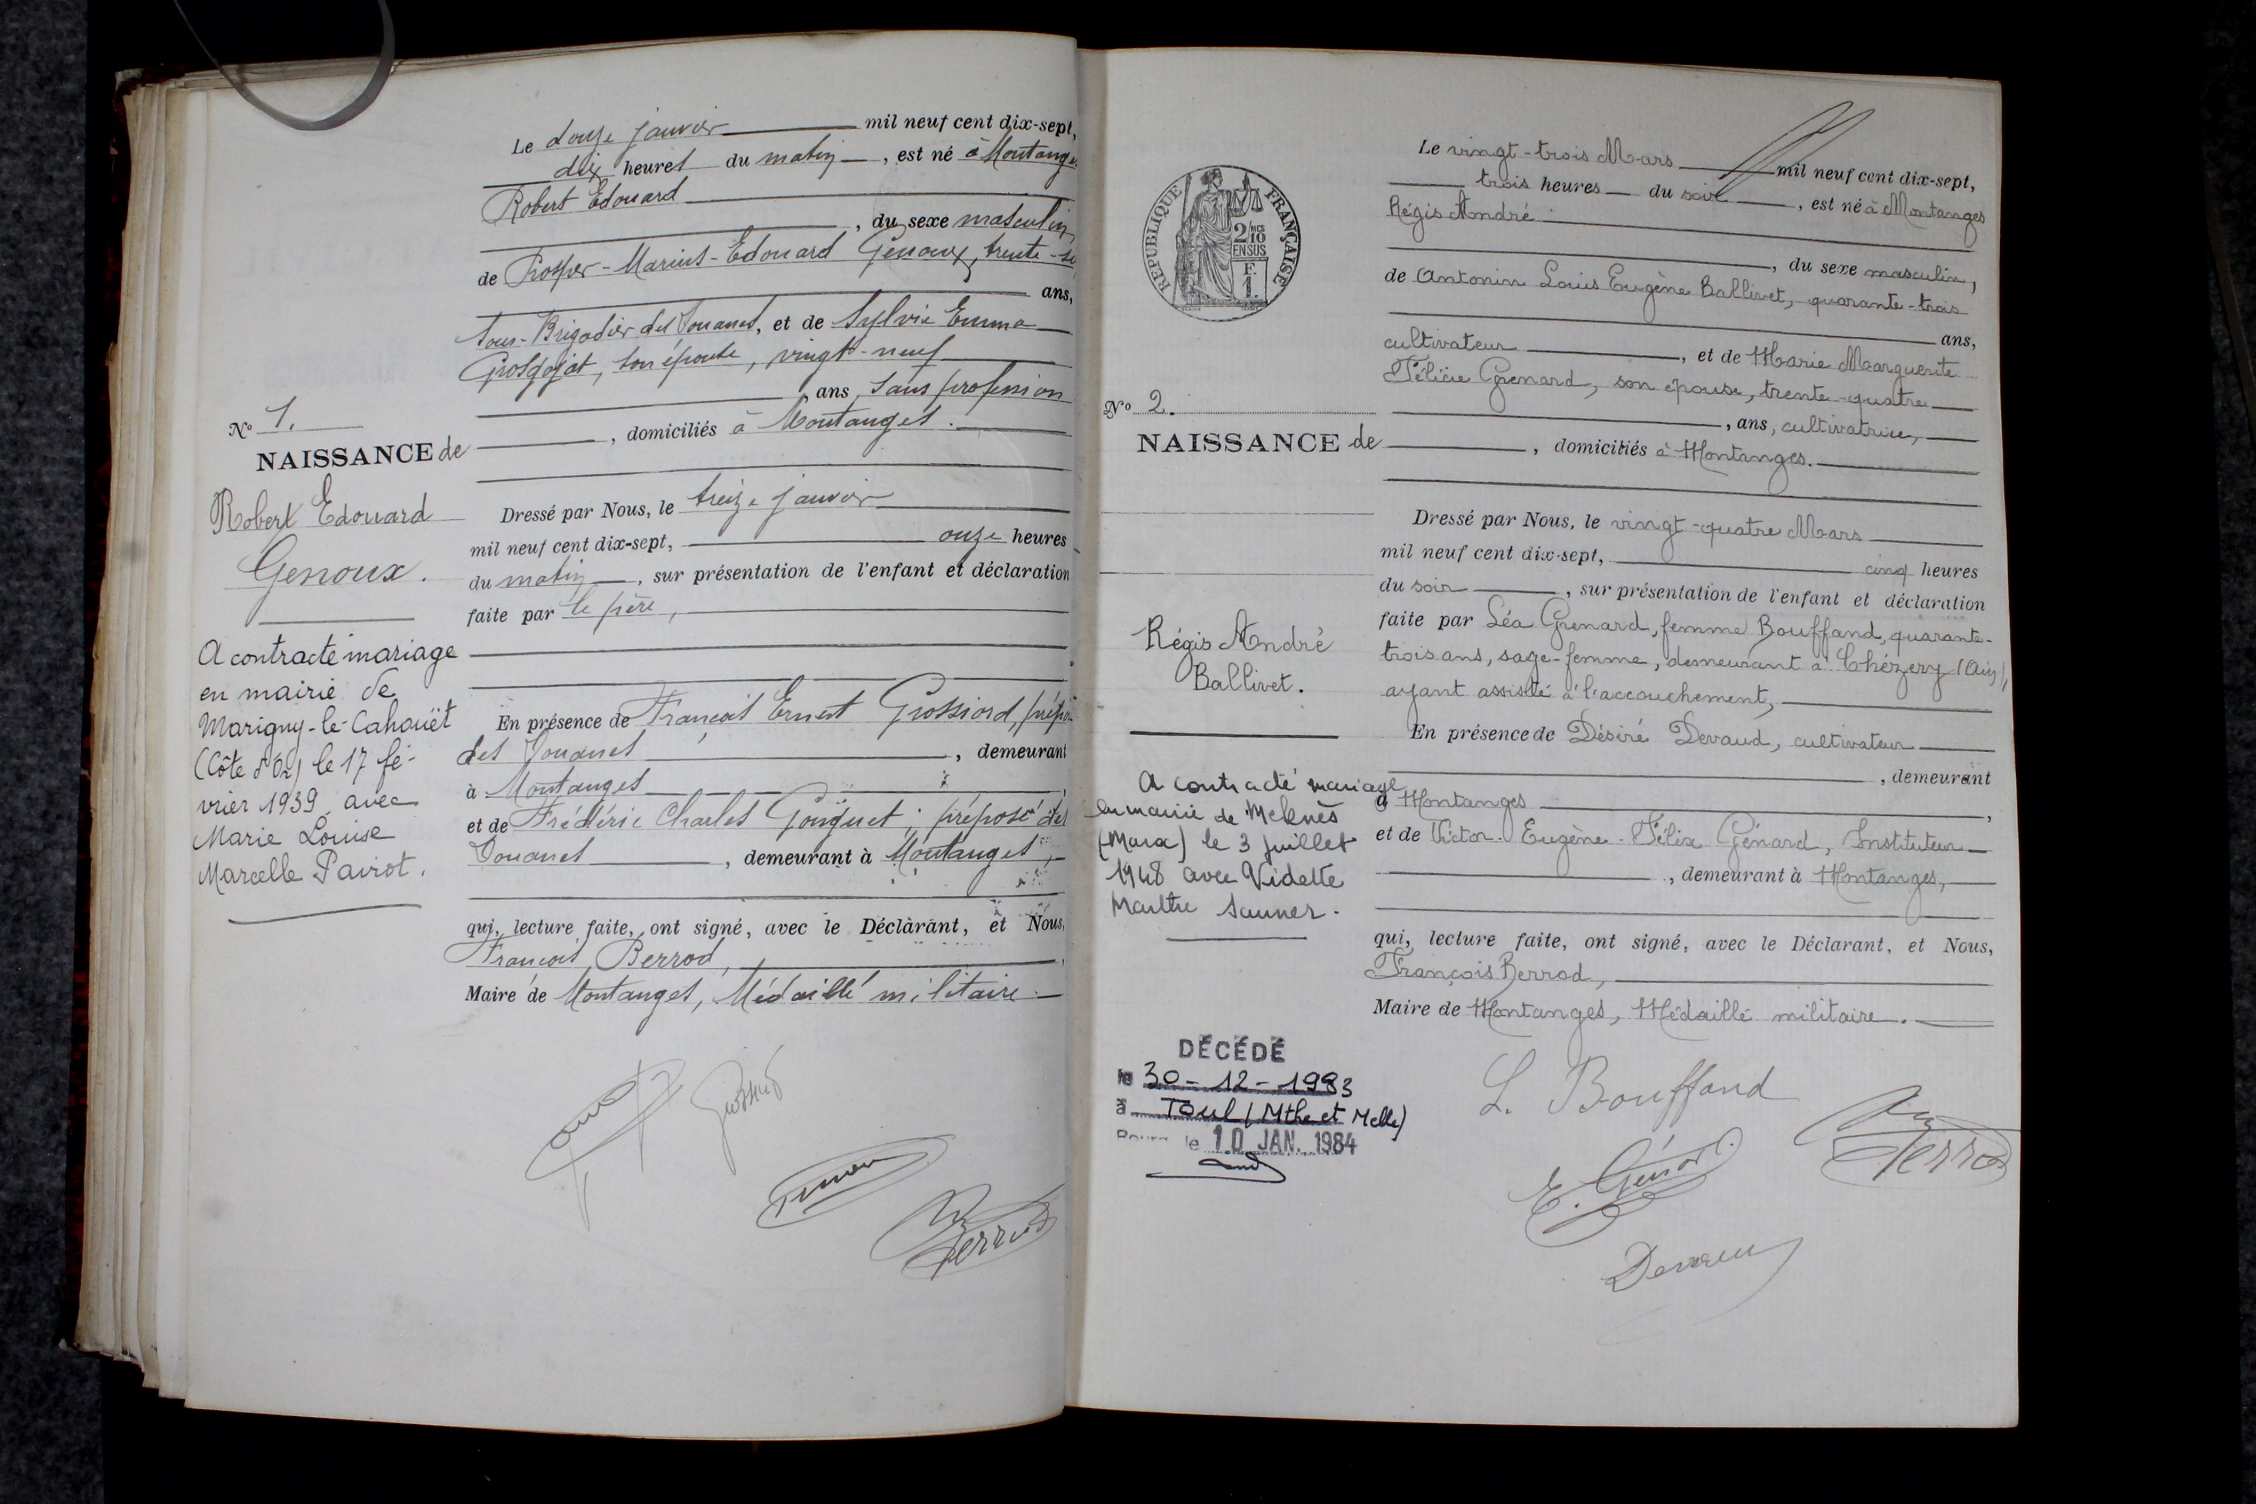 Le douze janvier mil neuf cent dix-sept,
dix heures du matin, est né à Montanges
Robert Edouard
, du sexe masculin,
de Prosper-Marius-Edouard Genoux, trente-
ans,
Sous-Brigadier des Douanes, et de Sylvie Emma
Grosgojat, son épouse, vingt-neuf
, ans, sans profession
, domiciliés à Montanges.
Dressé par Nous, le treize janvier
mil neuf cent dix-sept, onze heures
du matin, sur présentation de l'enfant et déclaration
faite par le père,
En présence de François Ernest Grossiord, préposé
des Douanes, demeurant
à Montanges,
et de Frédéric Charles Gouguet, préposé des
Douanes, demeurant à Montanges,
qui, lecture faite, ont signé, avec le Déclarant, et Nous,
François Berrod,
Maire de Montanges, Médaillé militaire.
Nº 1.
NAISSANCE de
Robert Edouard
Genoux.
A contracté mariage
en mairie de
Marigny-le-Cahouët
(Côte d'Or) le 17 fé-
vrier 1939 avec
Marie Louise
Marcelle Pairot.
Berrod
RÉPUBLIQUE FRANÇAISE
2/10
EN SUS
F.
1.
Le vingt-trois Mars mil neuf cent dix-sept,
trois heures du soir, est né à Montanges
Régis André
, du sexe masculin,
de Antonin Louis Eugène Ballivet, quarante-trois
ans,
cultivateur, et de Marie Marguerite
Félicie Grenard, son épouse, trente-quatre
, ans, cultivatrice,
, domiciliés à Montanges.
Dressé par Nous, le vingt-quatre Mars
mil neuf cent dix-sept, cinq heures
du soir, sur présentation de l'enfant et déclaration
faite par Léa Grenard, femme Bouffand, quarante-
trois ans, sage-femme, demeurant à Chézery (Ain),
ayant assisté à l'accouchement,
En présence de Désiré Devaud, cultivateur
, demeurant
à Montanges,
et de Victor-Eugène-Félix Génard, Instituteur
, demeurant à Montanges,
qui, lecture faite, ont signé, avec le Déclarant, et Nous,
François Berrod,
Maire de Montanges, Médaillé militaire.
Nº 2.
NAISSANCE de
Régis André
Ballivet.
A contracté mariage
en mairie de Meknès
(Maroc) le 3 juillet
1948 avec Vidette
Marthe Sauner.
DÉCÉDÉ
le 30-12-1983
à Toul (Mthe et Melle)
Bourg le 10 JAN. 1984
L. Bouffand
Berrod
E. Génard